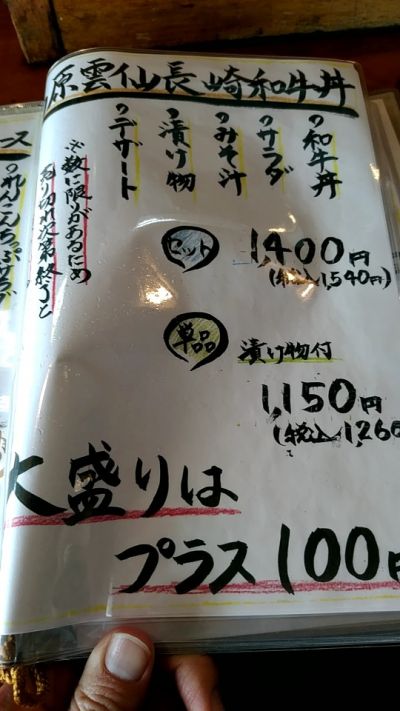 原雲仙長崎和牛丼
の和牛丼
のサラダ
のみそ汁
の漬け物
のデザート
※数に限りがあるため
売り切れ次第終了と
セット
1,400円
(税込1,540円)
単品
漬け物付
1,150円
(税込1260
大盛りは
プラス100円